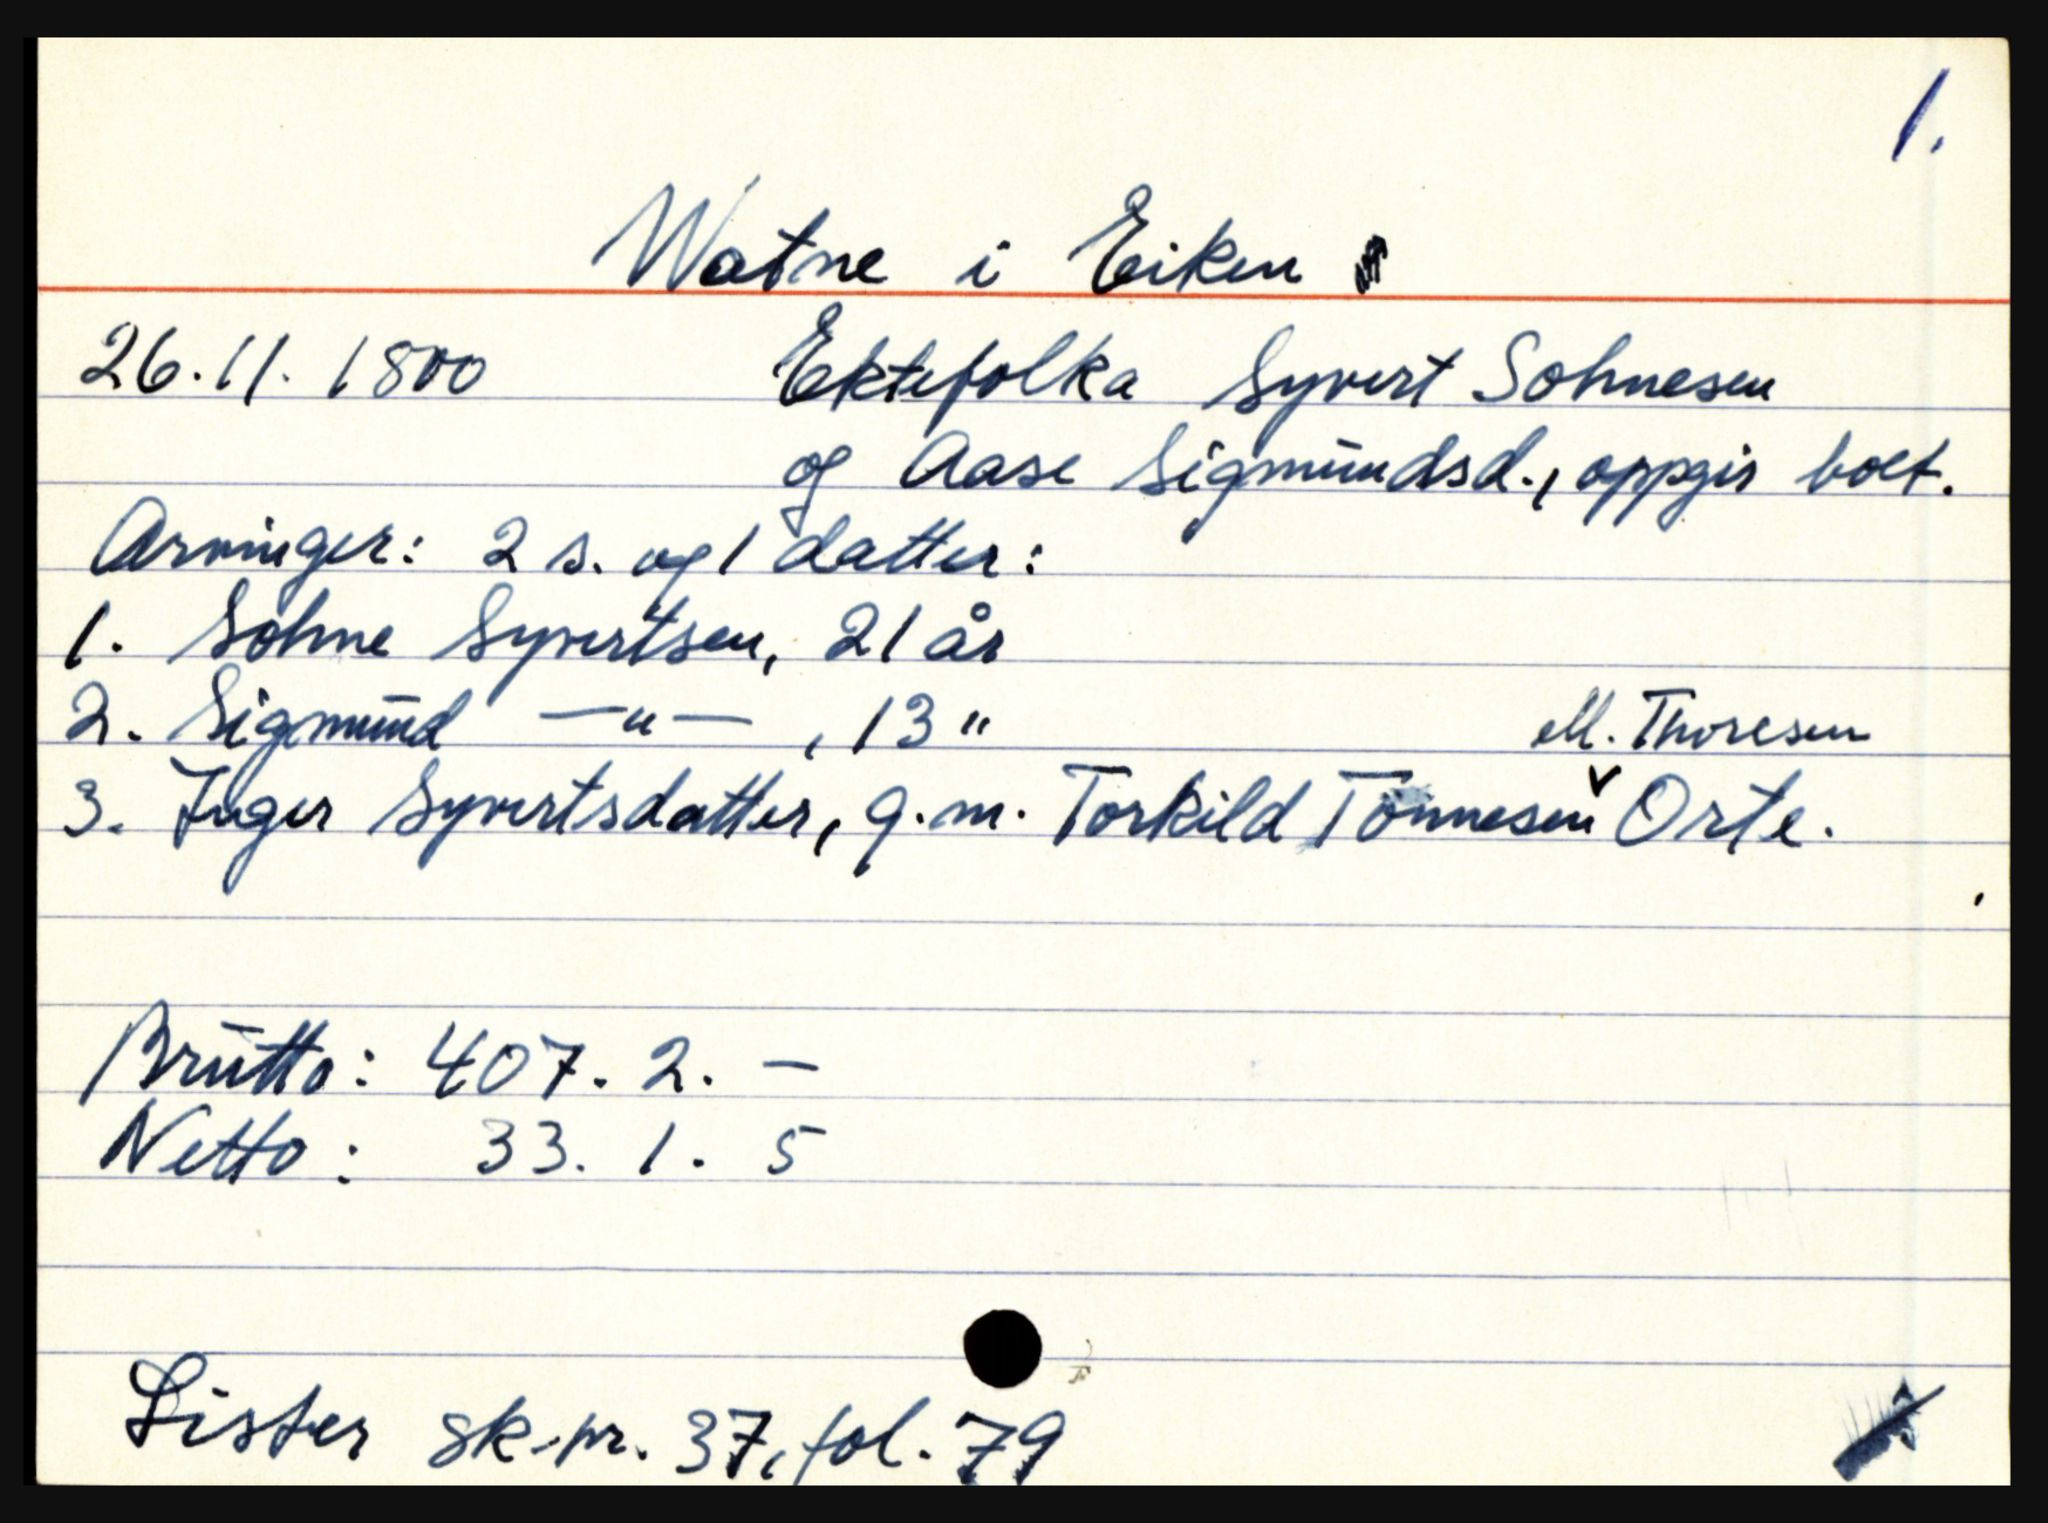 1.
Watne i Eiken
26.11.1800 Ektefolka Syvert Sohnesen
og Aase Sigmundsd., oppgir boet.
Arvinger: 2 s. og 1 datter:
1. Sohne Syvertsen, 21 år
2. Sigmund —"— , 13 "
ell. Thoresen
3. Inger Syvertsdatter, g.m. Torkild Tönnesen v Orte.
Brutto: 407. 2. —
Netto: 33. 1. 5
Lister sk.pr. 37, fol. 79